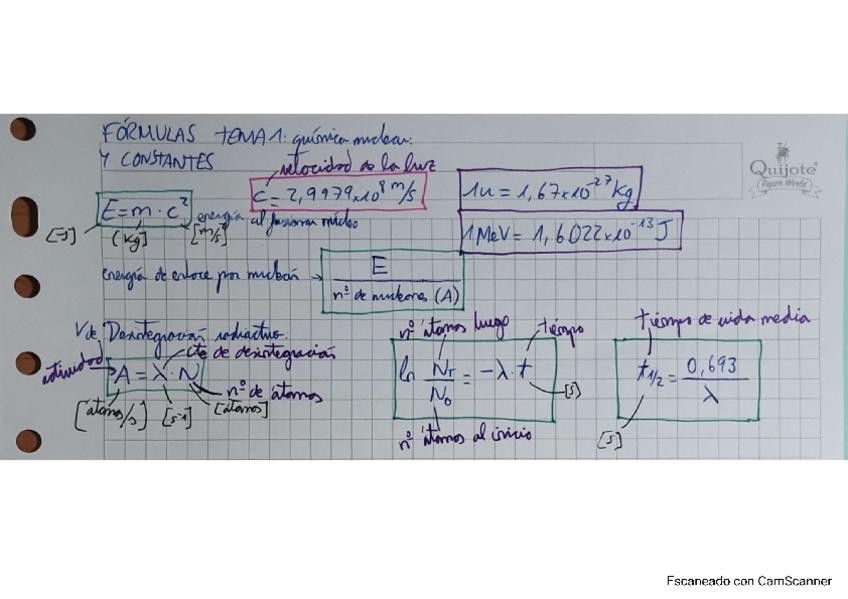 FÓRMULAS TEMA 1: química nuclear.
Y CONSTANTES
velocidad de la luz
Quijote®
Paper World
E=m·c²
C=2,9979x10⁸ m/s
1u = 1,67x10⁻²⁷ Kg
[J] [kg] [m/s]
energía al fusionar núcleo
1MeV= 1,6022x10⁻¹³ J
energía de enlace por nucleón → E
nº de nucleones (A)
V de Desintegración radiactiva:
cte de desintegración
actividad → A = λ · N
nº de átomos
[átomos/s] [s-1] [átomos]
nº átomos luego
tiempo
ln Nт/N₀ = -λ·t
[s]
nº átomos al inicio
tiempo de vida media
t₁/₂ = 0,693/λ
[s]
Escaneado con CamScanner